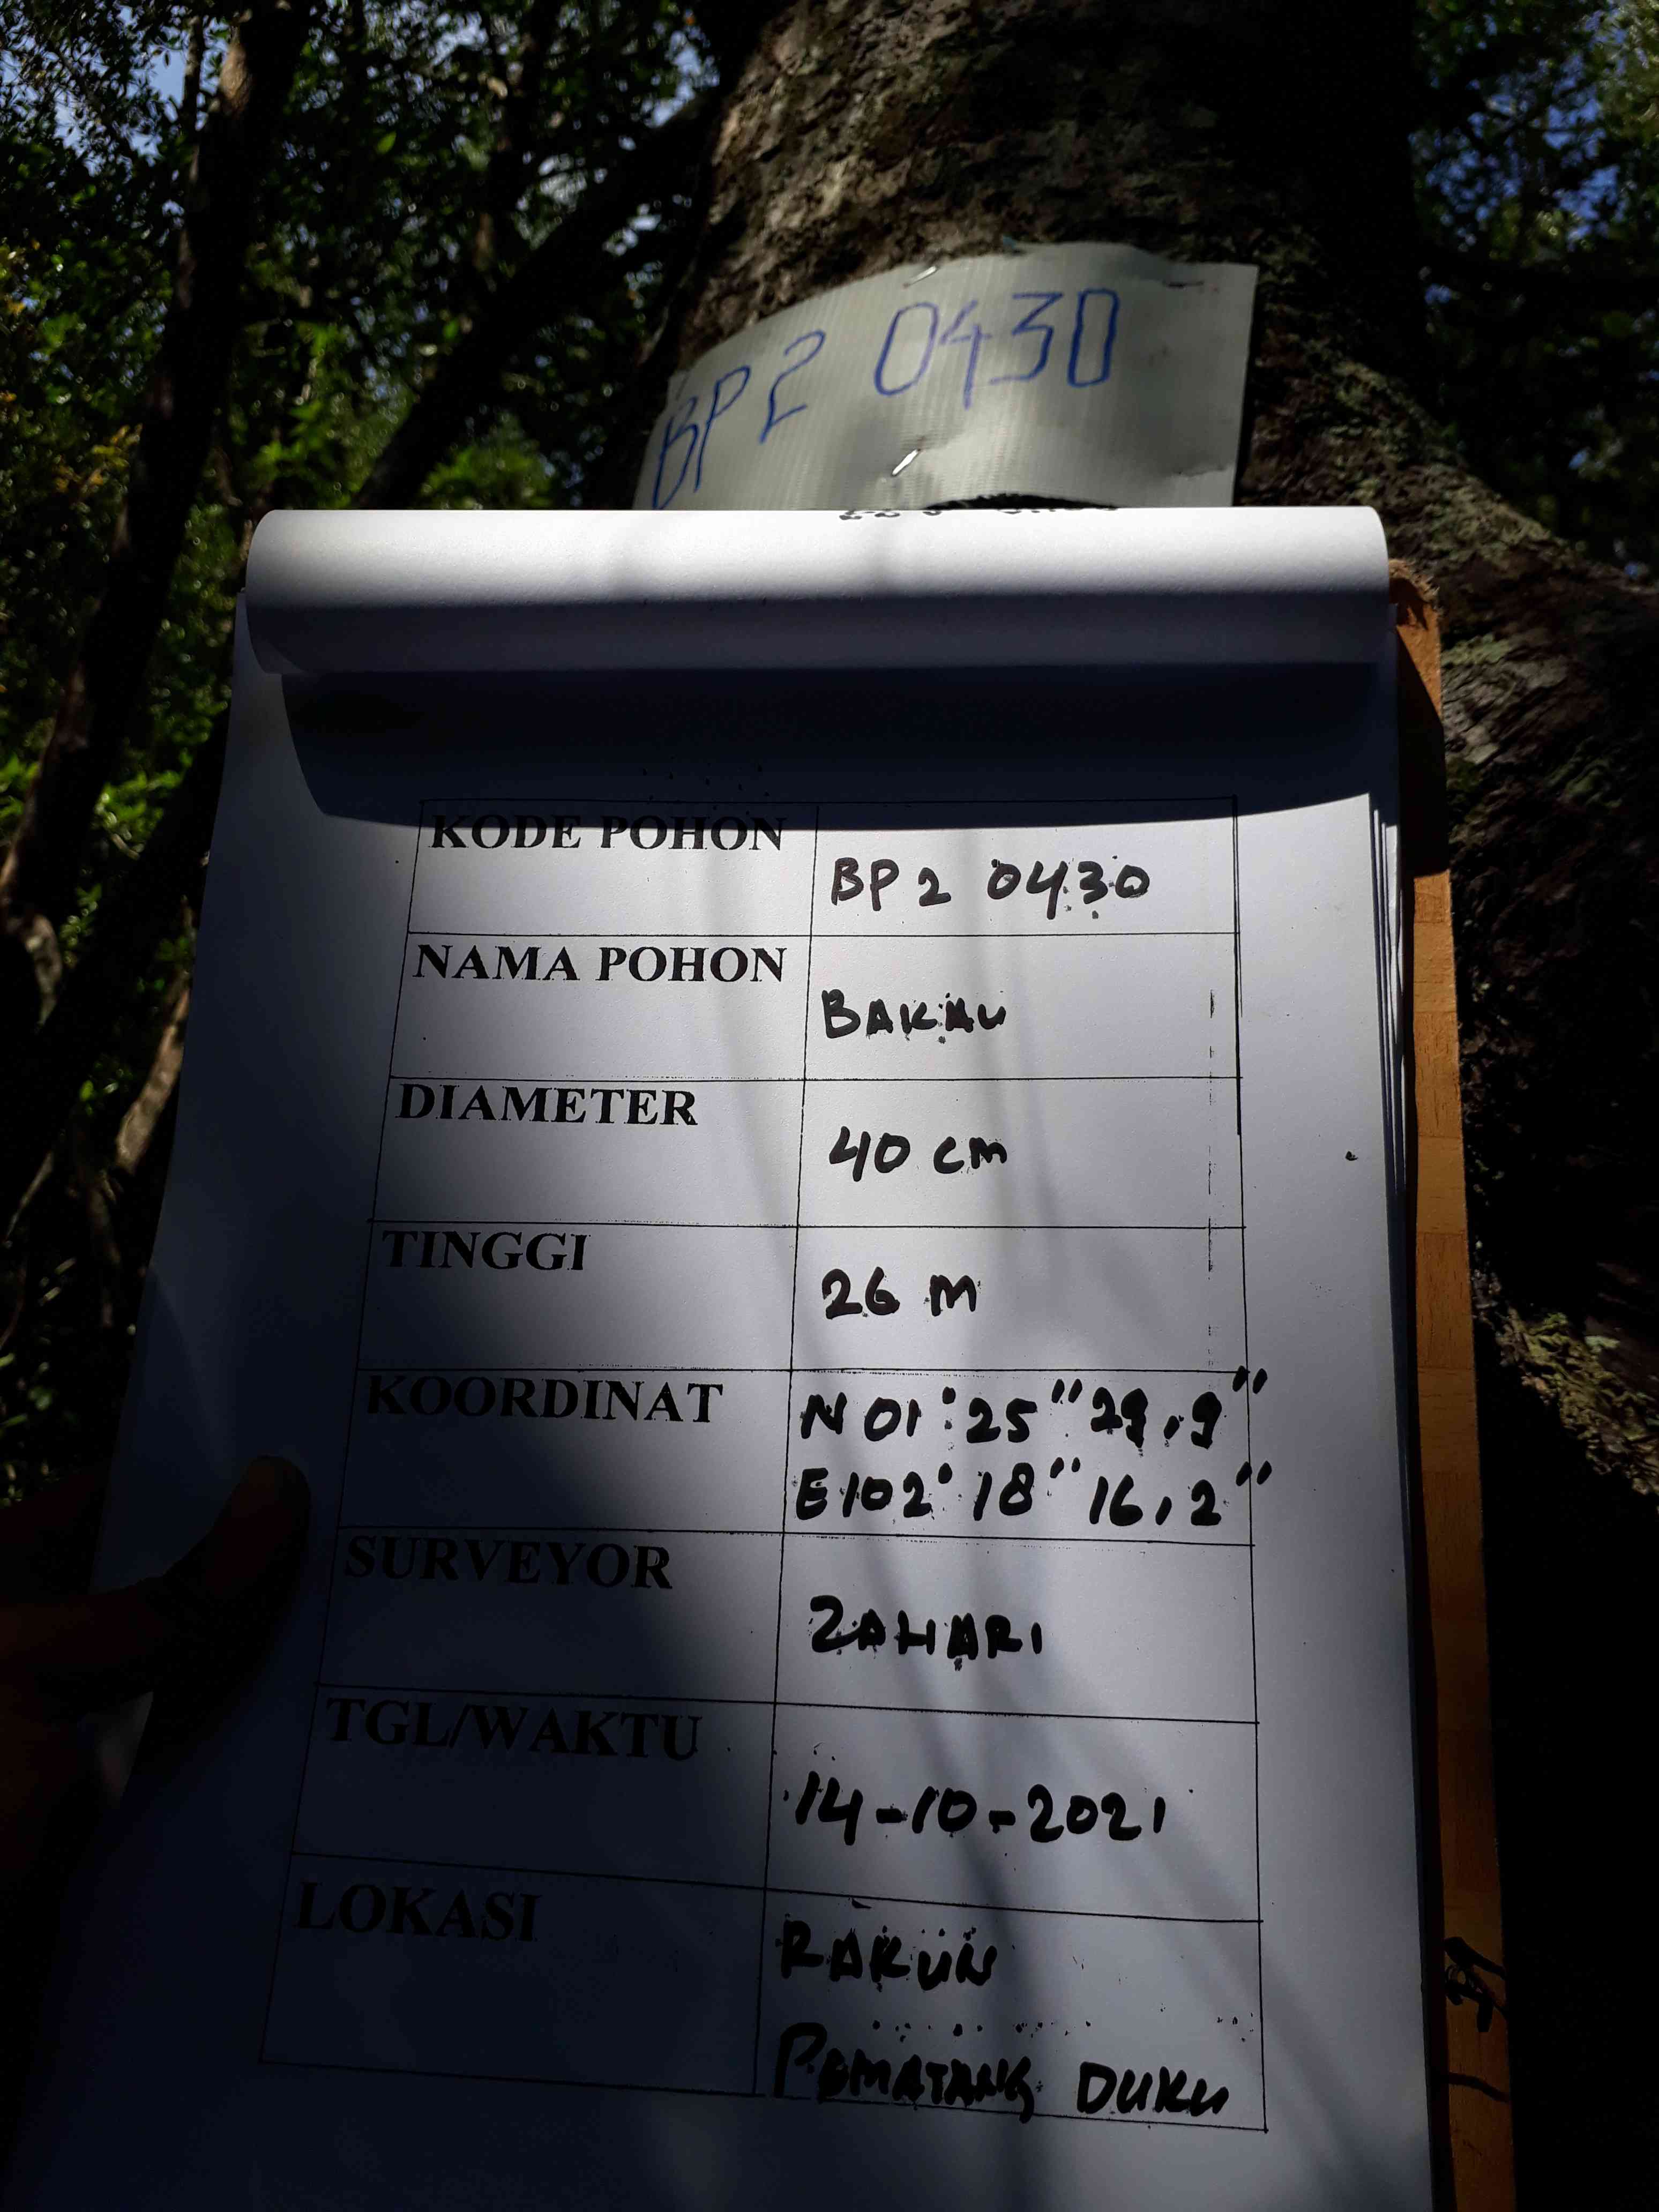 BP2 0430
KODE POHON
BP 2 0430
NAMA POHON
BAKAU
DIAMETER
40 cm
TINGGI
26 M
KOORDINAT
N 01° 25" 29,9"
E 102° 18" 16,2"
SURVEYOR
ZAHARI
TGL/WAKTU
14-10-2021
LOKASI
RAKUN
PEMATANG DUKU